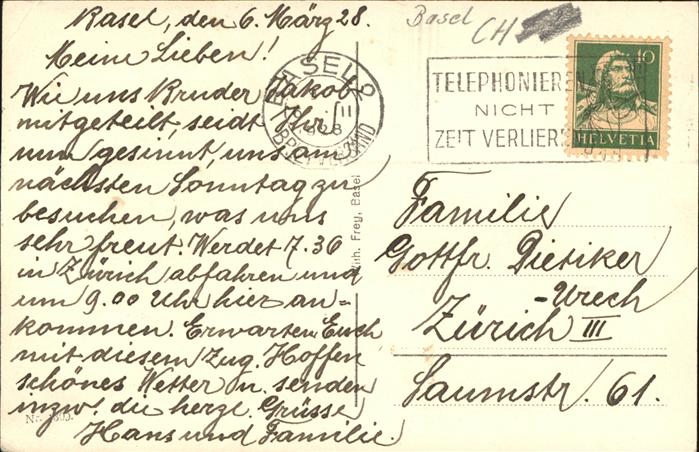 Basel, den 6. März 28.
Meine Lieben!
Wie uns Bruder Jakob
mitgeteilt, seidt Ihr
nun gesinnt, uns am
nächsten Sonntag zu
besuchen, was uns
sehr freut. Werdet 7.36
in Zürich abfahren und
um 9.00 Uhr hier an-
kommen. Erwarten Euch
mit diesem Zug. Hoffen
schönes Wetter u. senden
inzw. die herzl. Grüsse
Hans und Familie.
Basel
CH
BASEL 2
TELEPHONIEREN
NICHT
ZEIT VERLIEREN
10
HELVETIA
Lith. Frey, Basel
Familie
Gottfr. Dietiker
-Urech
Zürich III
Saumstr. 61.